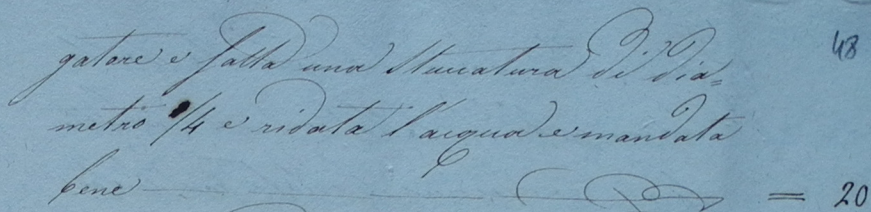 gatore e fatta una stuccatura di dia=
metro 1/4 e ridata l'acqua e mandata
bene = 20
48